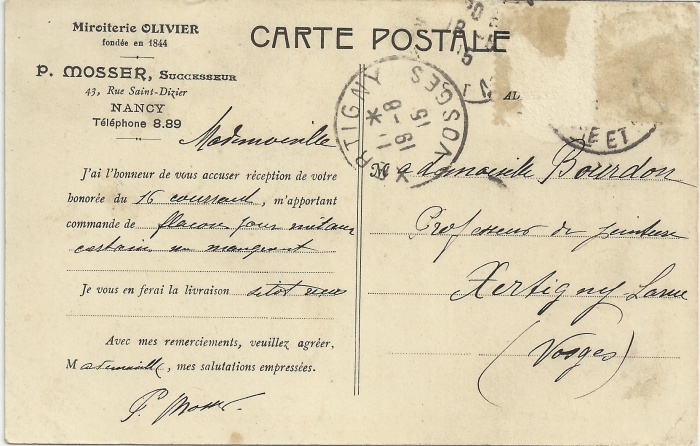 Miroiterie OLIVIER
fondée en 1844
P. MOSSER, SUCCESSEUR
43, Rue Saint-Dizier
NANCY
Téléphone 8.89
CARTE POSTALE
XERTIGNY VOSGES
19-8
15
Mademoiselle
J'ai l'honneur de vous accuser réception de votre
honorée du 16 courant, m'apportant
commande de flacon pour
certains
Je vous en ferai la livraison sitôt
Avec mes remerciements, veuillez agréer,
Mademoiselle, mes salutations empressées.
P. Mosser
Mademoiselle Bourdon
Professeur de peinture
Xertigny
(Vosges)